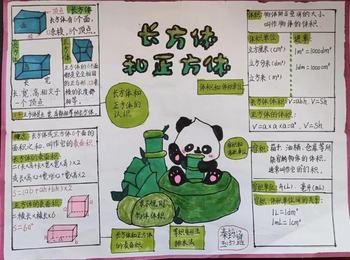 长方体
和正方体
长方体
长方体有6个面,
12条棱,8个顶点。
顶点
正方体
正方体的6个面
都是完全相同
的正方形,12条
棱的长度都
相等。
长、宽、高相交于
一个顶点。
长方体和
正方体的
认识
体积和体积单位
概念:长方体或正方体6个面的
面积之和,叫作它的表面积。
长方体的表面积:
S=(ab+ah+bh)×2
正方体的表面积:
=棱长×棱长×6
S=6a²
长方体和正方体
的表面积
不规则
物体体积
排水法
体积:物体所占空间的大小
叫作物体的体积。
体积单位
进率
立方厘米(cm³)
立方分米(dm³)
立方米(m³)
1m³=1000dm³
1dm³=1000cm³
长方体的体积:V=abh,V=Sh
正方体的体积:
V=a×a×a=a³ V=Sh
容积:箱子、油桶、仓库等所
能容纳物体的体积,
通常叫作它们的容积。
容积单位:升(L)、毫升(mL)
1L=1dm³
1mL=1cm³